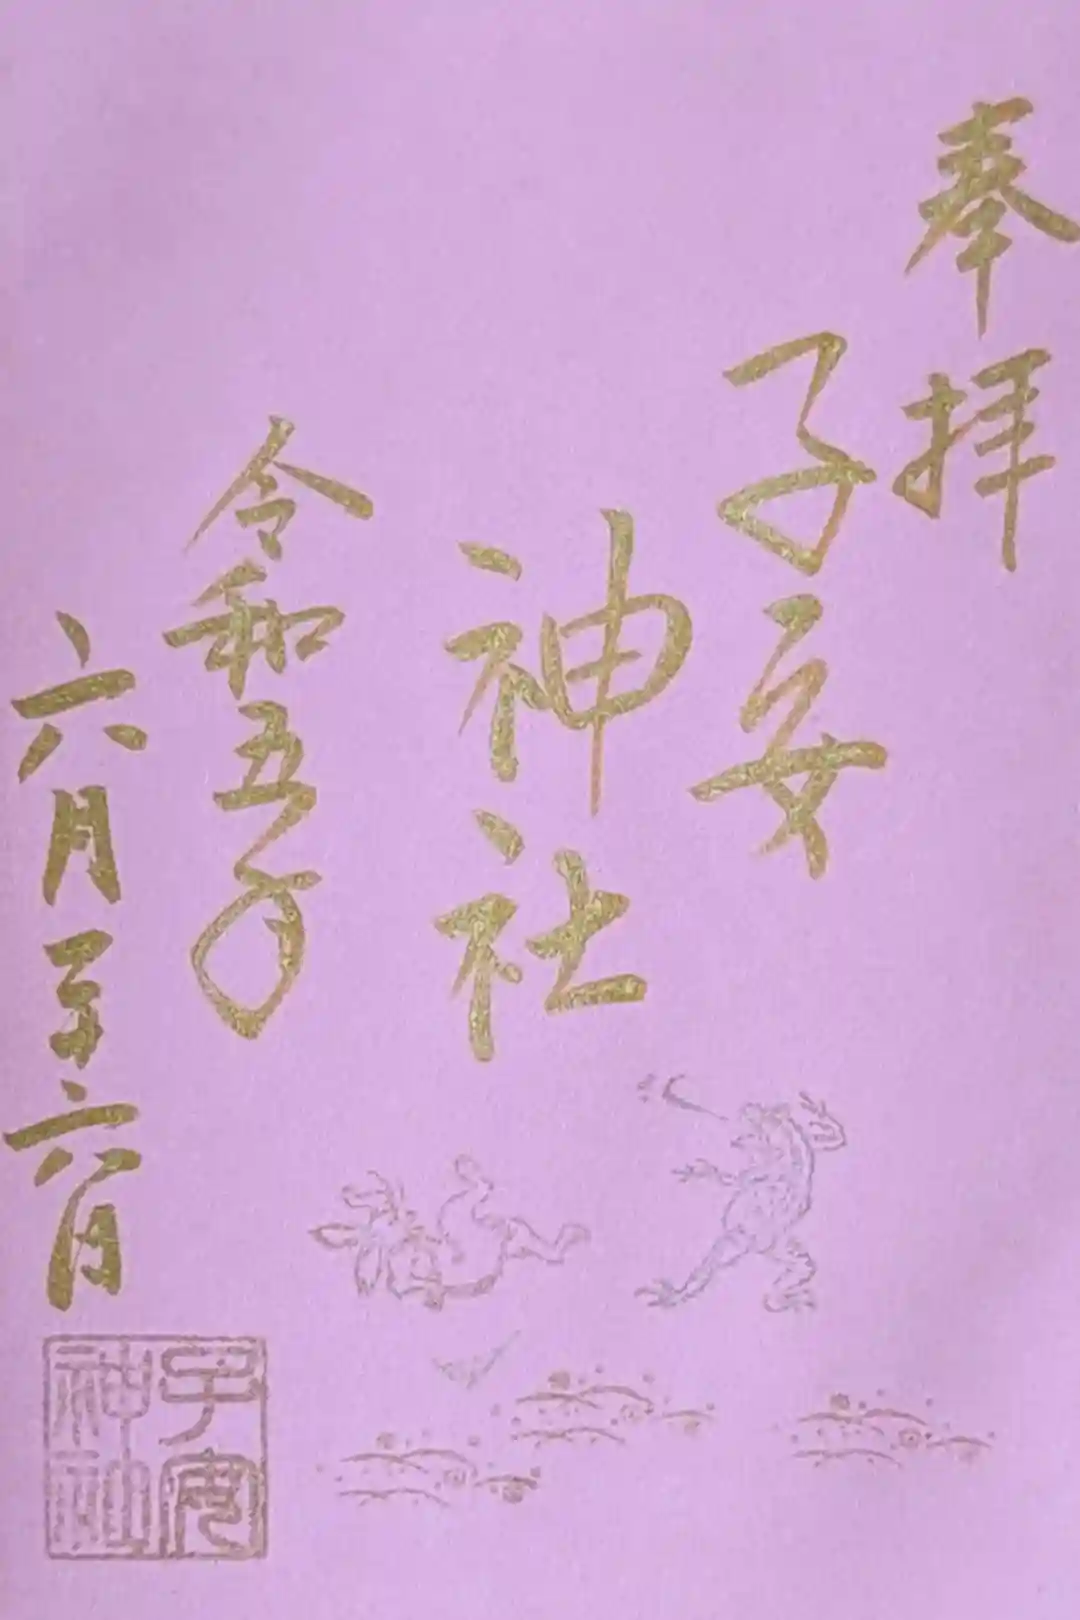 奉拝
子安
神社
令和五年
六月二十六日
子安
神社